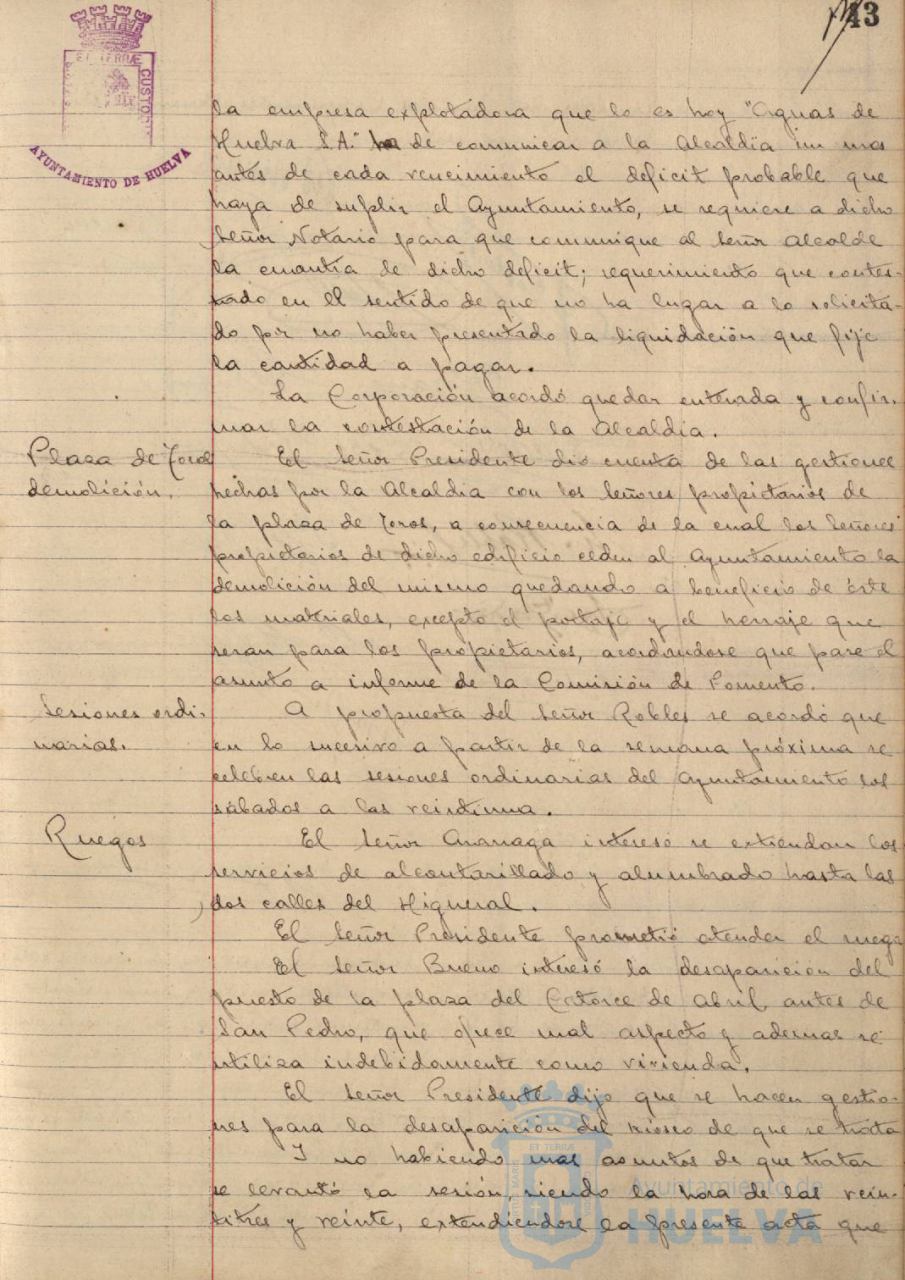 43
ET TERRÆ
CUSTODI
AYUNTAMIENTO DE HUELVA
la empresa explotadora que lo es hoy "Aguas de
Huelva S.A." ha de comunicar a la Alcaldia un mes
antes de cada vencimiento el deficit probable que
haya de suplir el Ayuntamiento, se requiere a dicho
Señor Notario para que comunique al Señor Alcalde
la cuantia de dicho deficit; requerimiento que contes-
tado en el sentido de que no ha lugar a lo solicita-
do por no haber presentado la liquidación que fije
la cantidad a pagar.
La Corporación acordó quedar enterada y confir-
mar la contestación de la Alcaldia.
Plaza de Toros
demolición.
El Señor Presidente dio cuenta de las gestiones
hechas por la Alcaldia con los Señores propietarios de
la plaza de Toros, a consecuencia de la cual los Señores
propietarios de dicho edificio ceden al Ayuntamiento la
demolición del mismo quedando a beneficio de éste
los materiales, excepto el portaje y el herraje que
seran para los propietarios, acordandose que pase el
asunto a informe de la Comisión de Fomento.
Sesiones ordi-
narias.
A propuesta del Señor Robles se acordó que
en lo sucesivo a partir de la semana próxima se
celebren las sesiones ordinarias del Ayuntamiento los
sábados a las veintiuna.
Ruegos
El Señor interesó se extiendan los
servicios de alcantarillado y alumbrado hasta las
dos calles del Higueral.
El Señor Presidente prometió atender el ruego
El Señor Bueno interesó la desaparición del
puesto de la plaza del Catorce de Abril, antes de
San Pedro, que ofrece mal aspecto y ademas se
utiliza indebidamente como vivienda.
El Señor Presidente dijo que se hacen gestio-
nes para la desaparición del kiosco de que se trata
Y no habiendo mas asuntos de que tratar
se levantó la sesión, siendo la hora de las vein-
titres y veinte, extendiendose la presente acta que
ET TERRÆ
Ayuntamiento de
HUELVA